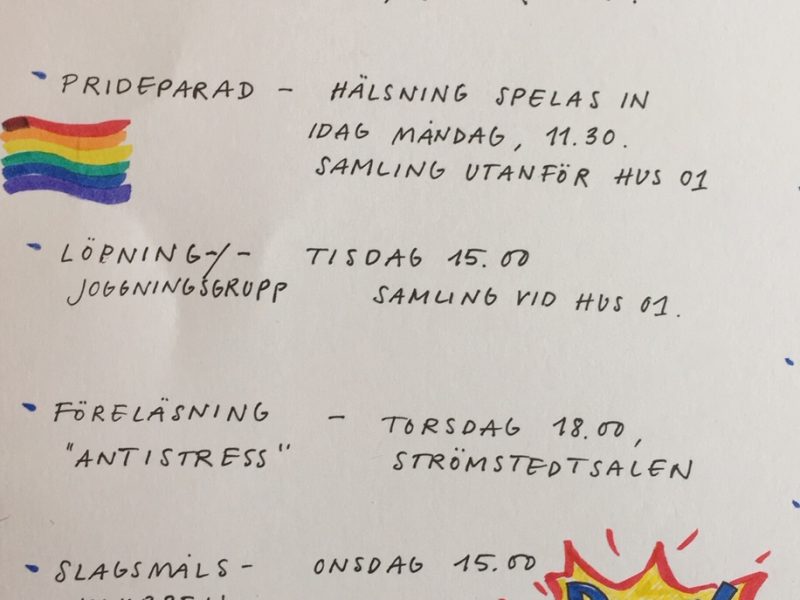 PRIDEPARAD - HÄLSNING SPELAS IN
IDAG MÅNDAG, 11.30.
SAMLING UTANFÖR HUS 01
LÖPNING-/- TISDAG 15.00
JOGGNINGSGRUPP SAMLING VID HUS 01.
FÖRELÄSNING - TORSDAG 18.00,
"ANTISTRESS" STRÖMSTEDTSALEN
SLAGSMÅLS- ONSDAG 15.00